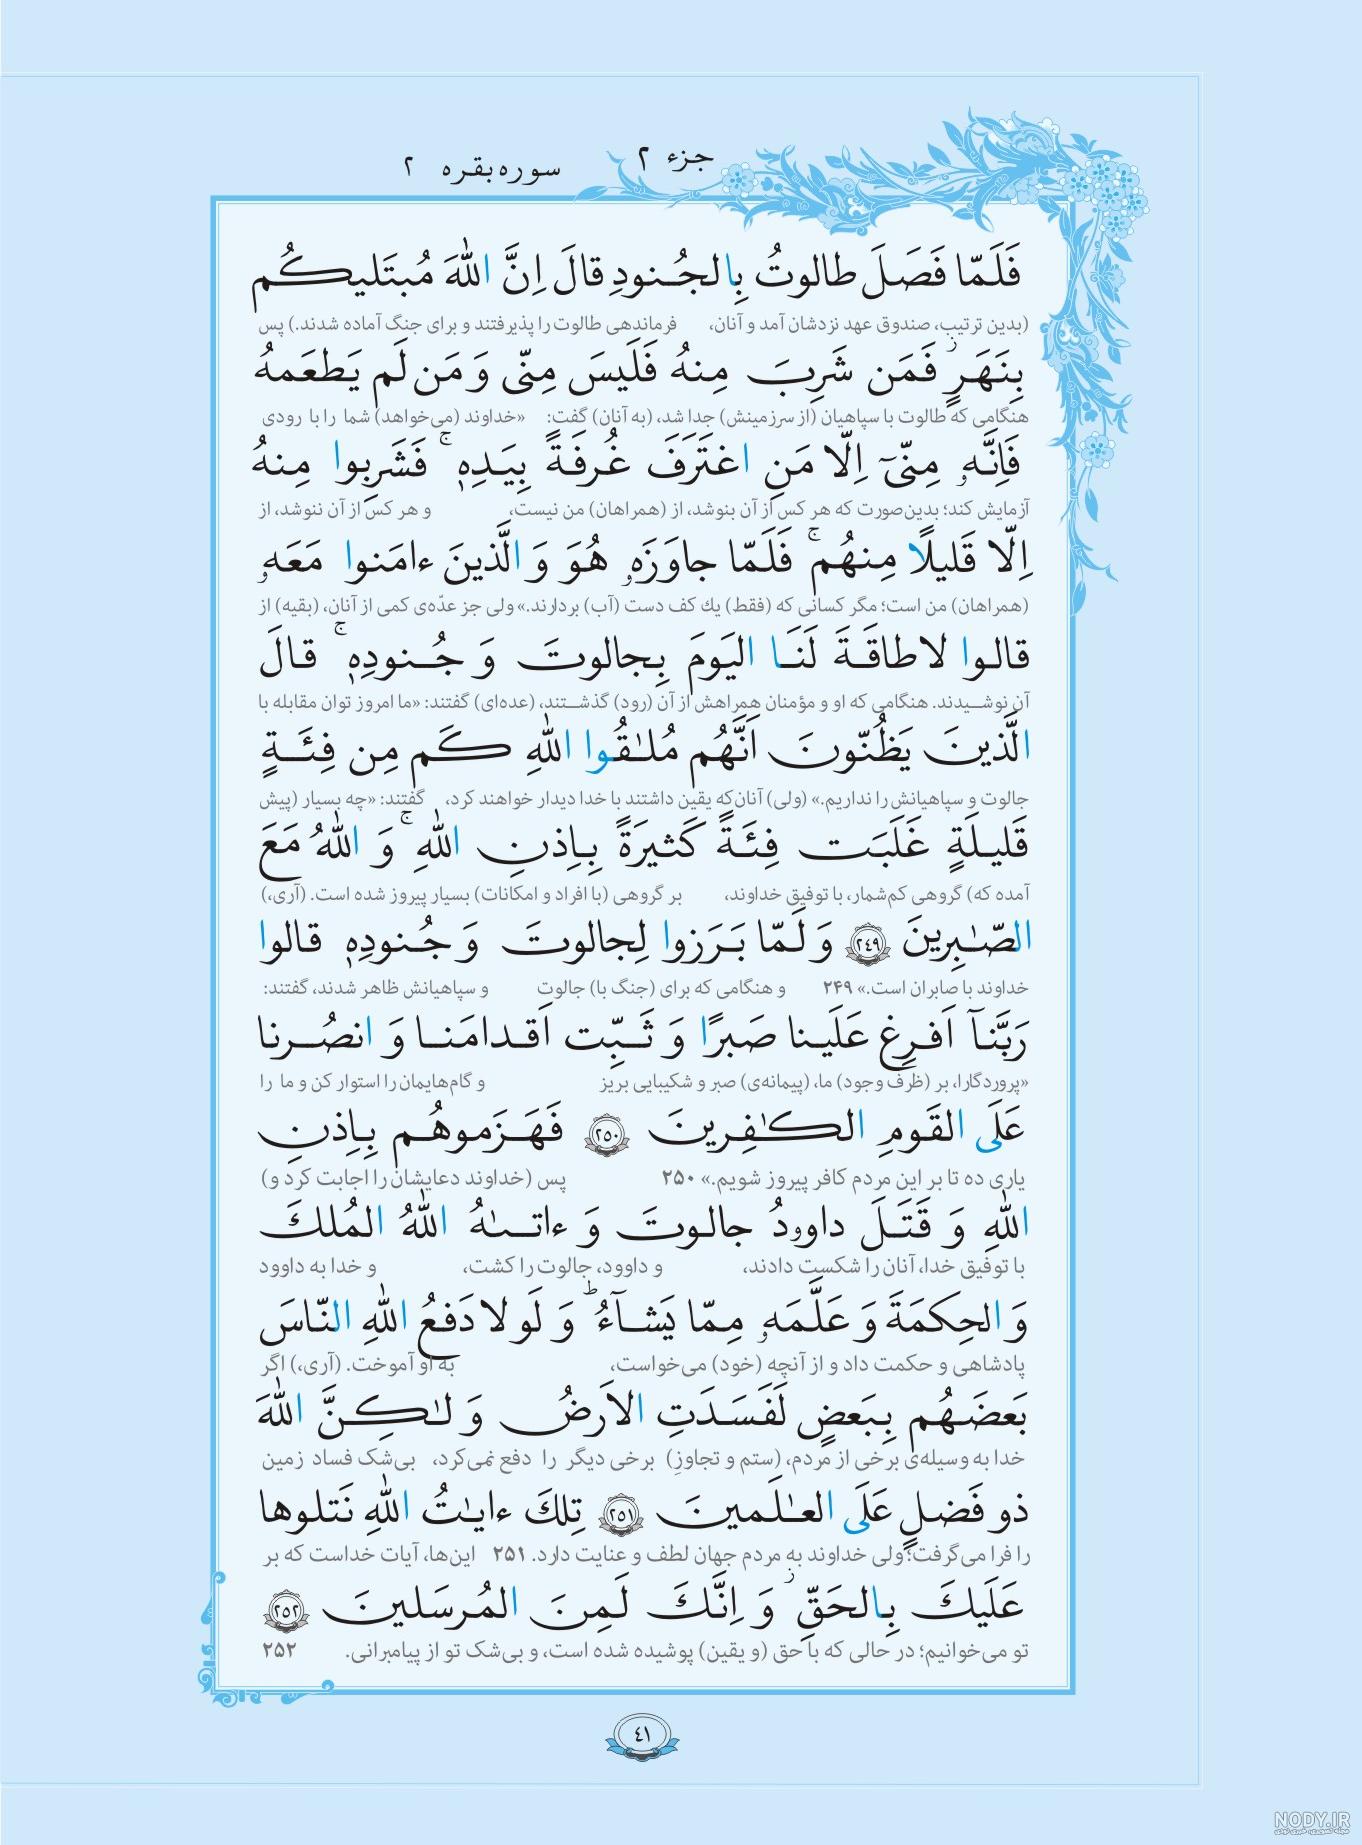 جزء ٢
سوره بقره ٢
فَلَمّا فَصَلَ طالوتُ بِالجُنودِ قالَ اِنَّ اللّٰهَ مُبتَليكُم
(بدین ترتیب، صندوق عهد نزدشان آمد و آنان، فرماندهی طالوت را پذیرفتند و برای جنگ آماده شدند.) پس
بِنَهَرٍ ۛ فَمَن شَرِبَ مِنهُ فَلَيسَ مِنّى وَ مَن لَم يَطعَمهُ
هنگامی که طالوت با سپاهیان (از سرزمینش) جدا شد، (به آنان) گفت: «خداوند (می‌خواهد) شما را با رودی
فَاِنَّهٗ مِنّىٓ اِلّا مَنِ اغتَرَفَ غُرفَةً بِيَدِهٖ ۚ فَشَرِبوا مِنهُ
آزمایش کند؛ بدین‌صورت که هر کس از آن بنوشد، از (همراهان) من نیست، و هر کس از آن ننوشد، از
اِلّا قَليلًا مِنهُم ۚ فَلَمّا جاوَزَهٗ هُوَ وَ الَّذينَ ءامَنوا مَعَهٗ
(همراهان) من است؛ مگر کسانی که (فقط) یك کف دست (آب) بردارند.» ولی جز عدّه‌ی کمی از آنان، (بقیه) از
قالوا لا طاقَةَ لَنَا اليَومَ بِجالوتَ وَ جُنودِهٖ ۚ قالَ
آن نوشیدند. هنگامی که او و مؤمنان همراهش از آن (رود) گذشتند، (عده‌ای) گفتند: «ما امروز توان مقابله با
الَّذينَ يَظُنّونَ اَنَّهُم مُلٰقُوا اللّٰهِ كَم مِن فِئَةٍ
جالوت و سپاهیانش را نداریم.» (ولی) آنان‌که یقین داشتند با خدا دیدار خواهند کرد، گفتند: «چه بسیار (پیش
قَليلَةٍ غَلَبَت فِئَةً كَثيرَةً بِاِذنِ اللّٰهِ ۚ وَ اللّٰهُ مَعَ
آمده که) گروهی کم‌شمار، با توفیق خداوند، بر گروهی (با افراد و امکانات) بسیار پیروز شده است. (آری،)
الصّٰبِرينَ ٢٤٩ وَ لَمّا بَرَزوا لِجالوتَ وَ جُنودِهٖ قالوا
خداوند با صابران است.» ۲۴۹ و هنگامی که برای (جنگ با) جالوت و سپاهیانش ظاهر شدند، گفتند:
رَبَّنآ اَفرِغ عَلَينا صَبرًا وَ ثَبِّت اَقدامَنا وَ انصُرنا
«پروردگارا، بر (ظرف وجود) ما، (پیمانه‌ی) صبر و شکیبایی بریز و گام‌هایمان را استوار کن و ما را
عَلَى القَومِ الكٰفِرينَ ٢٥٠ فَهَزَموهُم بِاِذنِ
یاری ده تا بر این مردم کافر پیروز شویم.» ۲۵۰ پس (خداوند دعایشان را اجابت کرد و)
اللّٰهِ وَ قَتَلَ داوودُ جالوتَ وَ ءاتىٰهُ اللّٰهُ المُلكَ
با توفیق خدا، آنان را شکست دادند، و داوود، جالوت را کشت، و خدا به داوود
وَ الحِكمَةَ وَ عَلَّمَهٗ مِمّا يَشآءُ ۗ وَ لَولا دَفعُ اللّٰهِ النّاسَ
پادشاهی و حکمت داد و از آنچه (خود) می‌خواست، به او آموخت. (آری،) اگر
بَعضَهُم بِبَعضٍ لَفَسَدَتِ الاَرضُ وَ لٰكِنَّ اللّٰهَ
خدا به وسیله‌ی برخی از مردم، (ستم و تجاوزِ) برخی دیگر را دفع نمی‌کرد، بی‌شک فساد زمین
ذو فَضلٍ عَلَى العٰلَمينَ ٢٥١ تِلكَ ءايٰتُ اللّٰهِ نَتلوها
را فرا می‌گرفت؛ ولی خداوند به مردم جهان لطف و عنایت دارد. ۲۵۱ این‌ها، آیات خداست که بر
عَلَيكَ بِالحَقِّ ۚ وَ اِنَّكَ لَمِنَ المُرسَلينَ ٢٥٢
تو می‌خوانیم؛ در حالی که با حق (و یقین) پوشیده شده است، و بی‌شک تو از پیامبرانی. ۲۵۲
٤١
NODY.IR